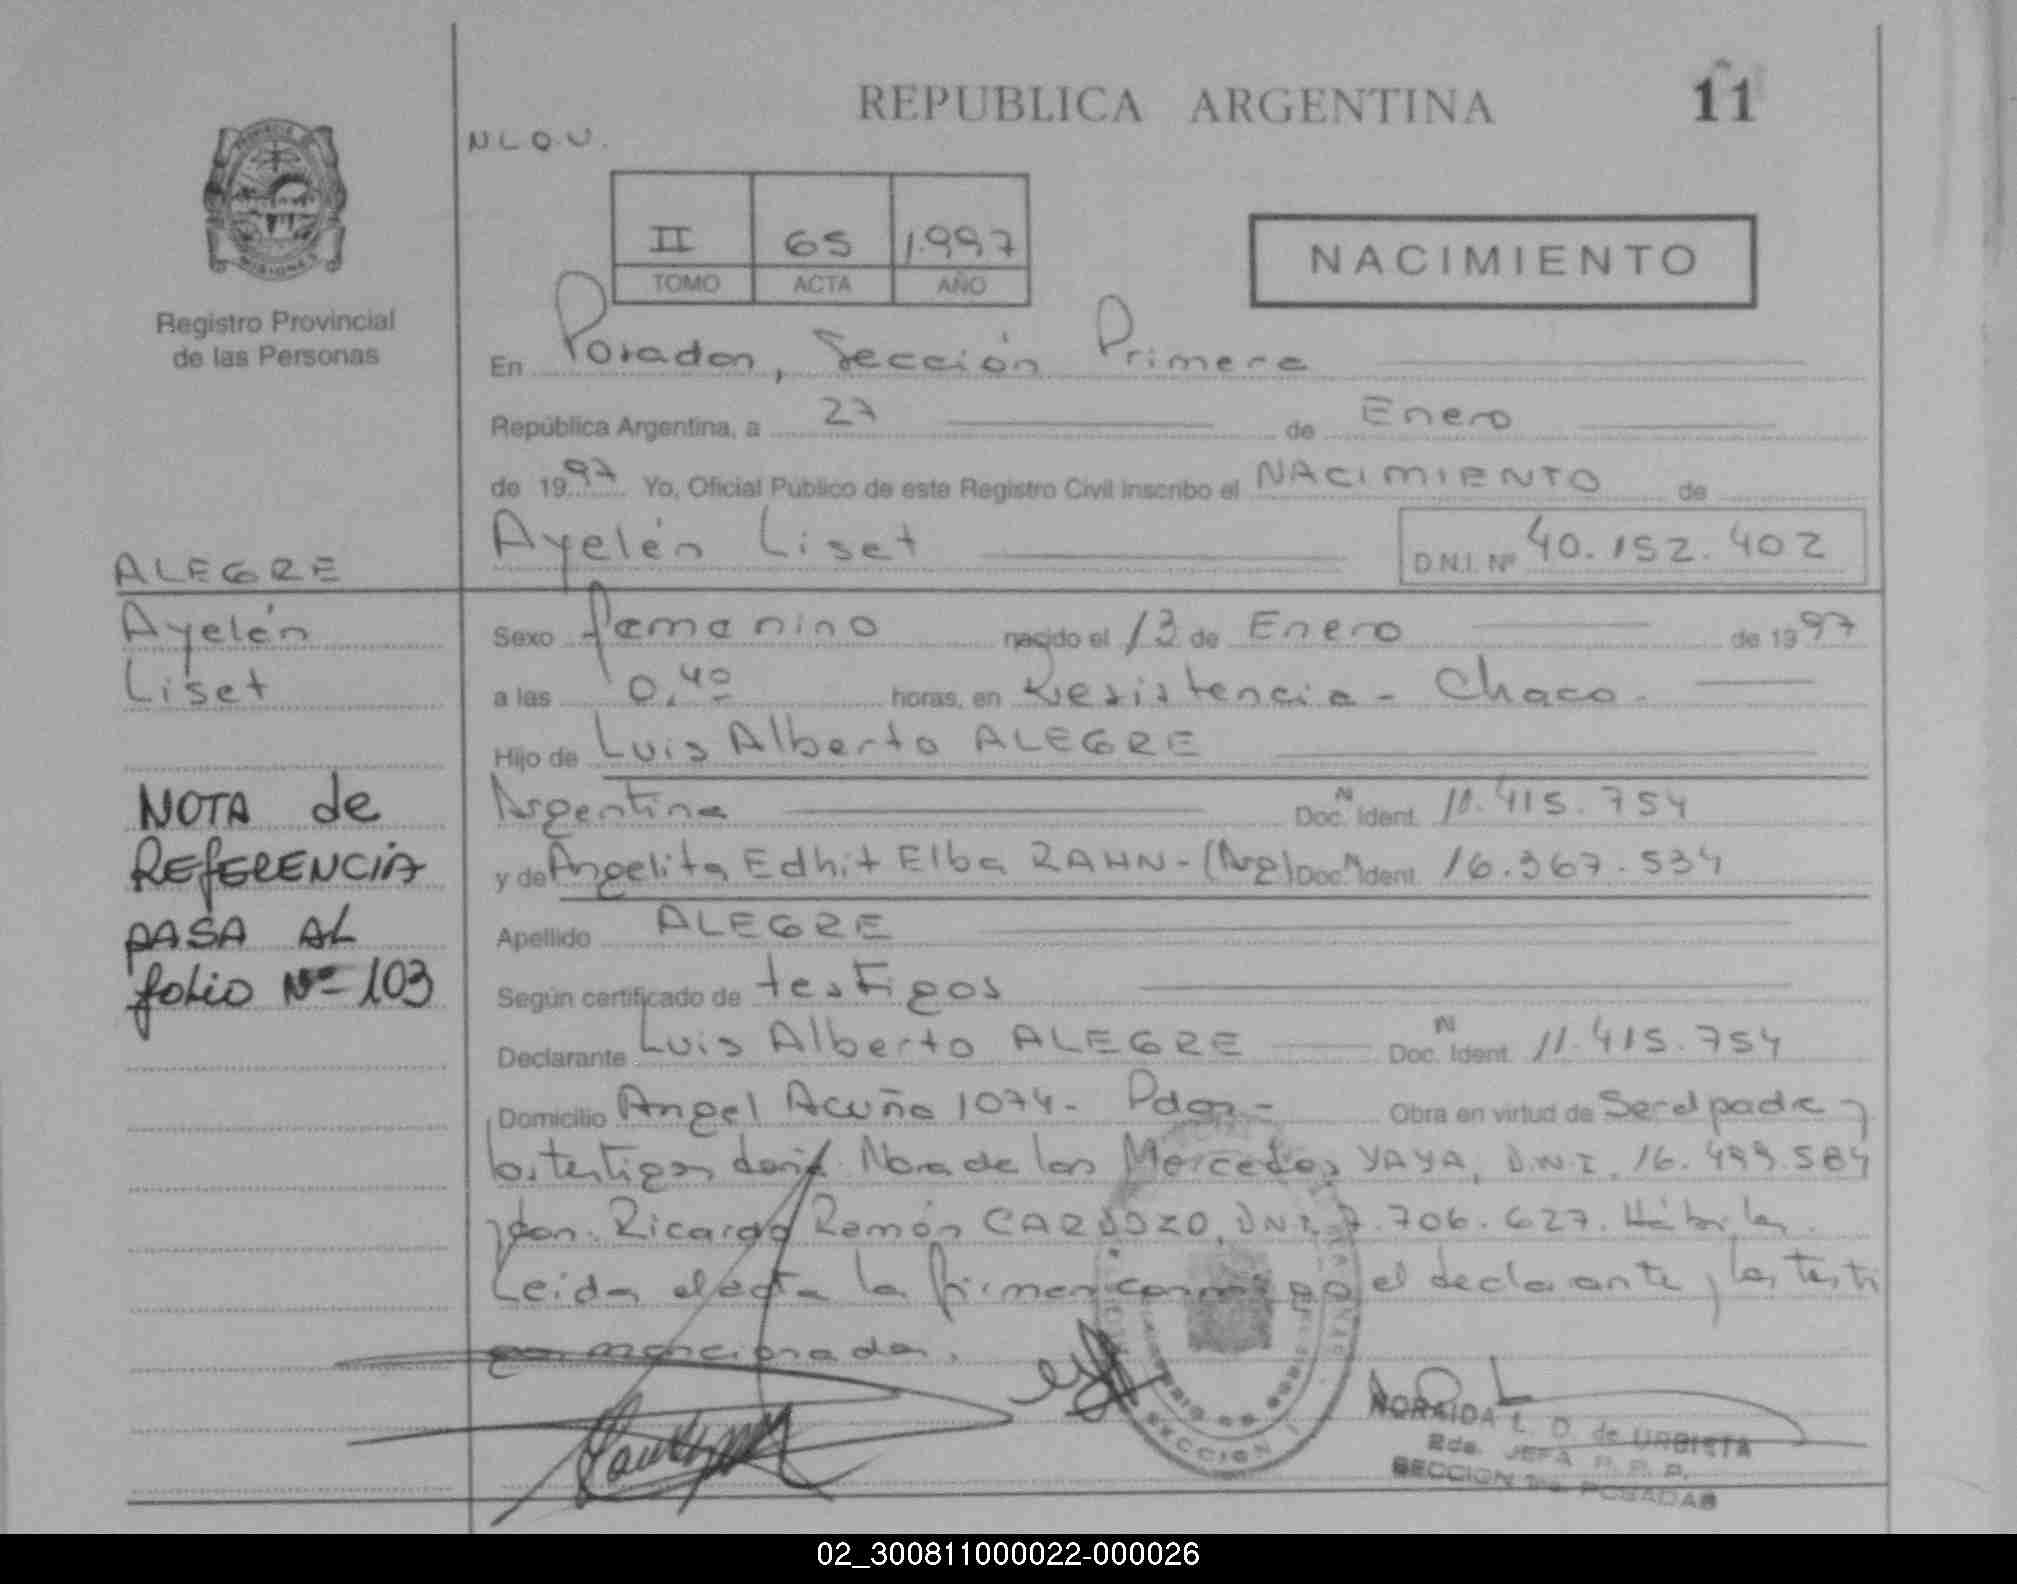 REPUBLICA ARGENTINA
11
N L Q. U.
II 65 1.997
TOMO ACTA AÑO
NACIMIENTO
PROVINCIA
MISIONES
Registro Provincial
de las Personas
En Posadas, Sección Primera
República Argentina, a 27 de Enero
de 1997 Yo, Oficial Público de este Registro Civil inscribo el NACIMIENTO de
Ayelén Liset D.N.I. Nº 40.152.402
ALEGRE
Ayelén
Liset
NOTA de
REFERENCIA
PASA AL
folio Nº 103
Sexo femenino nacido el 13 de Enero de 1997
a las 0,40 horas, en Resistencia - Chaco.
Hijo de Luis Alberto ALEGRE
Argentina Doc. N Ident. 11.415.754
y de Angelita Edhit Elba RAHN - (Arg) Doc. N Ident. 16.367.534
Apellido ALEGRE
Según certificado de testigos
Declarante Luis Alberto ALEGRE Doc. N Ident. 11.415.754
Domicilio Angel Acuña 1074 - Pdas - Obra en virtud de Ser el padre y
los testigos doña Nora de las Mercedes YAYA, D.N.I. 16.499.584
y don Ricardo Ramón CARDOZO, D.N.I. 7.706.627. Hábiles.
Leída el acta la firman conmigo el declarante y los testi
gos mencionados.
SECCION 1
NORAIDA L. D. de URBIETA
2da. JEFA R. P. P.
SECCION 1ra. POSADAS
02_300811000022-000026